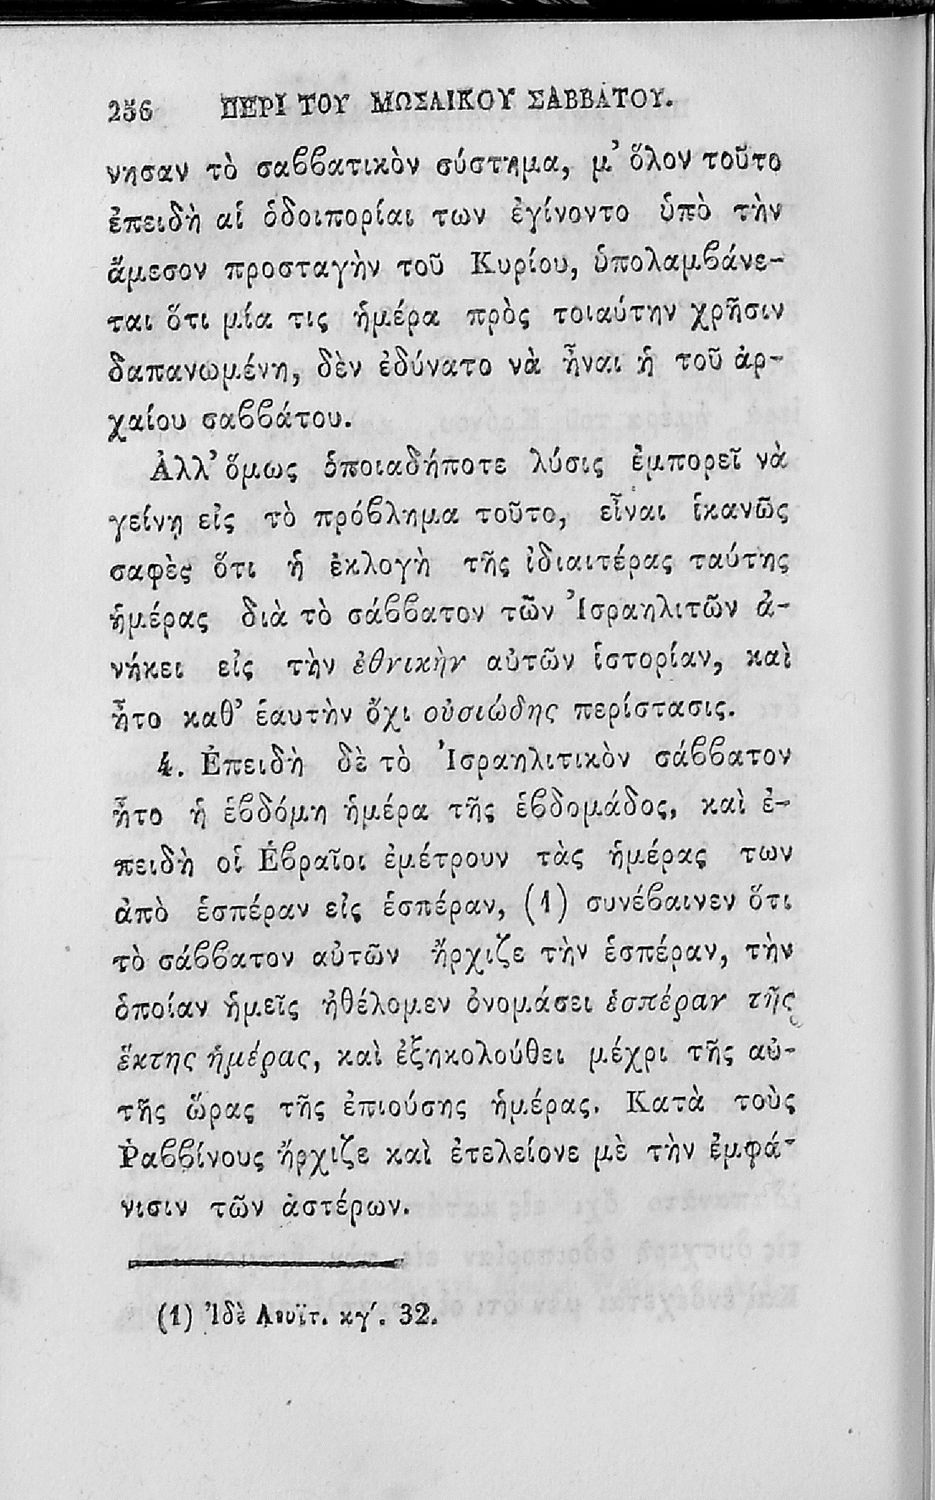 256 ΠΕΡΙ ΤΟΥ ΜΩΣΑΙΚΟΥ ΣΑΒΒΑΤΟΥ.
νησαν τὸ σαββατικὸν σύστημα, μ’ ὅλον τοῦτο
ἐπειδὴ αἱ ὁδοιπορίαι των ἐγίνοντο ὑπὸ τὴν
ἄμεσον προσταγὴν τοῦ Κυρίου, ὑπολαμβάνε-
ται ὅτι μία τις ἡμέρα πρὸς τοιαύτην χρῆσιν
δαπανωμένη, δὲν ἐδύνατο νὰ ἦναι ἡ τοῦ ἀρ-
χαίου σαββάτου.
Ἀλλ’ ὅμως ὁποιαδήποτε λύσις ἐμπορεῖ νὰ
γείνῃ εἰς τὸ πρόβλημα τοῦτο, εἶναι ἱκανῶς
σαφὲς ὅτι ἡ ἐκλογὴ τῆς ἰδιαιτέρας ταύτης
ἡμέρας διὰ τὸ σάββατον τῶν Ἰσραηλιτῶν ἀ-
νήκει εἰς τὴν ἐθνικὴν αὐτῶν ἱστορίαν, καὶ
ἦτο καθ’ ἑαυτὴν ὄχι οὐσιώδης περίστασις.
4. Ἐπειδὴ δὲ τὸ Ἰσραηλιτικὸν σάββατον
ἦτο ἡ ἑβδόμη ἡμέρα τῆς ἑβδομάδος, καὶ ἐ-
πειδὴ οἱ Ἑβραῖοι ἐμέτρουν τὰς ἡμέρας των
ἀπὸ ἑσπέραν εἰς ἑσπέραν, (1) συνέβαινεν ὅτι
τὸ σάββατον αὐτῶν ἤρχιζε τὴν ἑσπέραν, τὴν
ὁποίαν ἡμεῖς ἠθέλομεν ὀνομάσει ἑσπέραν τῆς
ἕκτης ἡμέρας, καὶ ἐξηκολούθει μέχρι τῆς αὐ-
τῆς ὥρας τῆς ἐπιούσης ἡμέρας. Κατὰ τοὺς
Ῥαββίνους ἤρχιζε καὶ ἐτελείονε μὲ τὴν ἐμφά-
νισιν τῶν ἀστέρων.
(1) Ἰδὲ Λευϊτ. κγ΄. 32.